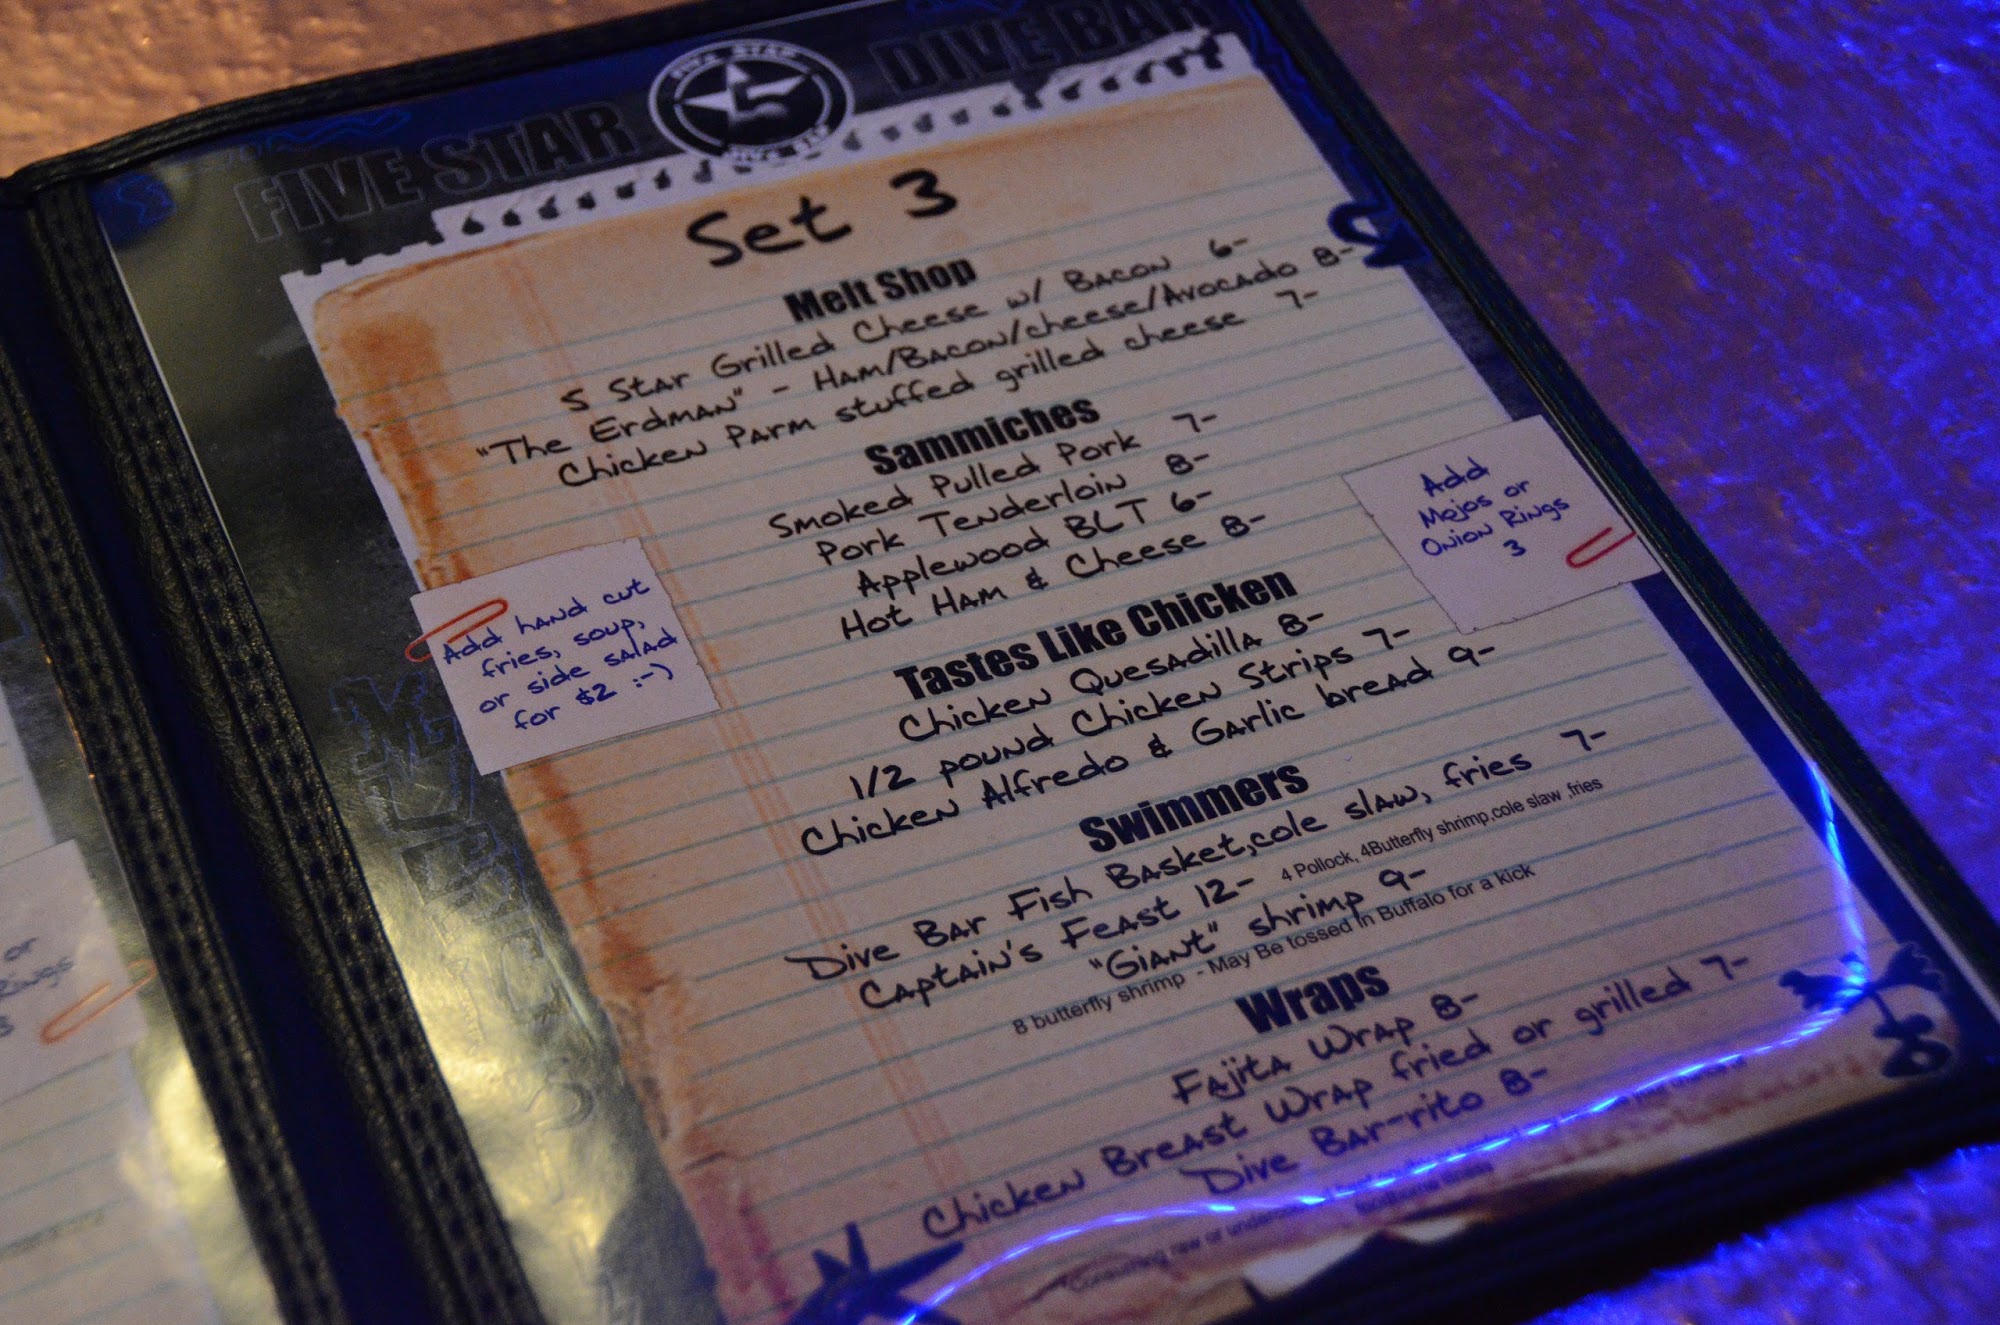 FIVE STAR
DIVE BAR
FIVE STAR
5
DIVE BAR
Set 3
Melt Shop
5 Star Grilled Cheese w/ Bacon 6-
"The Erdman" - Ham/Bacon/cheese/Avocado 8-
Chicken Parm stuffed grilled cheese 7-
Sammiches
Smoked Pulled Pork 7-
Pork Tenderloin 8-
Applewood BLT 6-
Hot Ham & Cheese 8-
Add
Mojos or
Onion Rings
3
Add hand cut
fries, soup,
or side salad
for $2 :-)
Tastes Like Chicken
Chicken Quesadilla 8-
1/2 pound Chicken Strips 7-
Chicken Alfredo & Garlic bread 9-
Swimmers
Dive Bar Fish Basket,cole slaw, fries 7-
Captain's Feast 12- 4 Pollock, 4Butterfly shrimp,cole slaw ,fries
"Giant" shrimp 9-
8 butterfly shrimp - May Be tossed in Buffalo for a kick
Wraps
Fajita Wrap 8-
Chicken Breast Wrap fried or grilled 7-
Dive Bar-rito 8-
Consuming raw or
foodborne illness
or
Rings